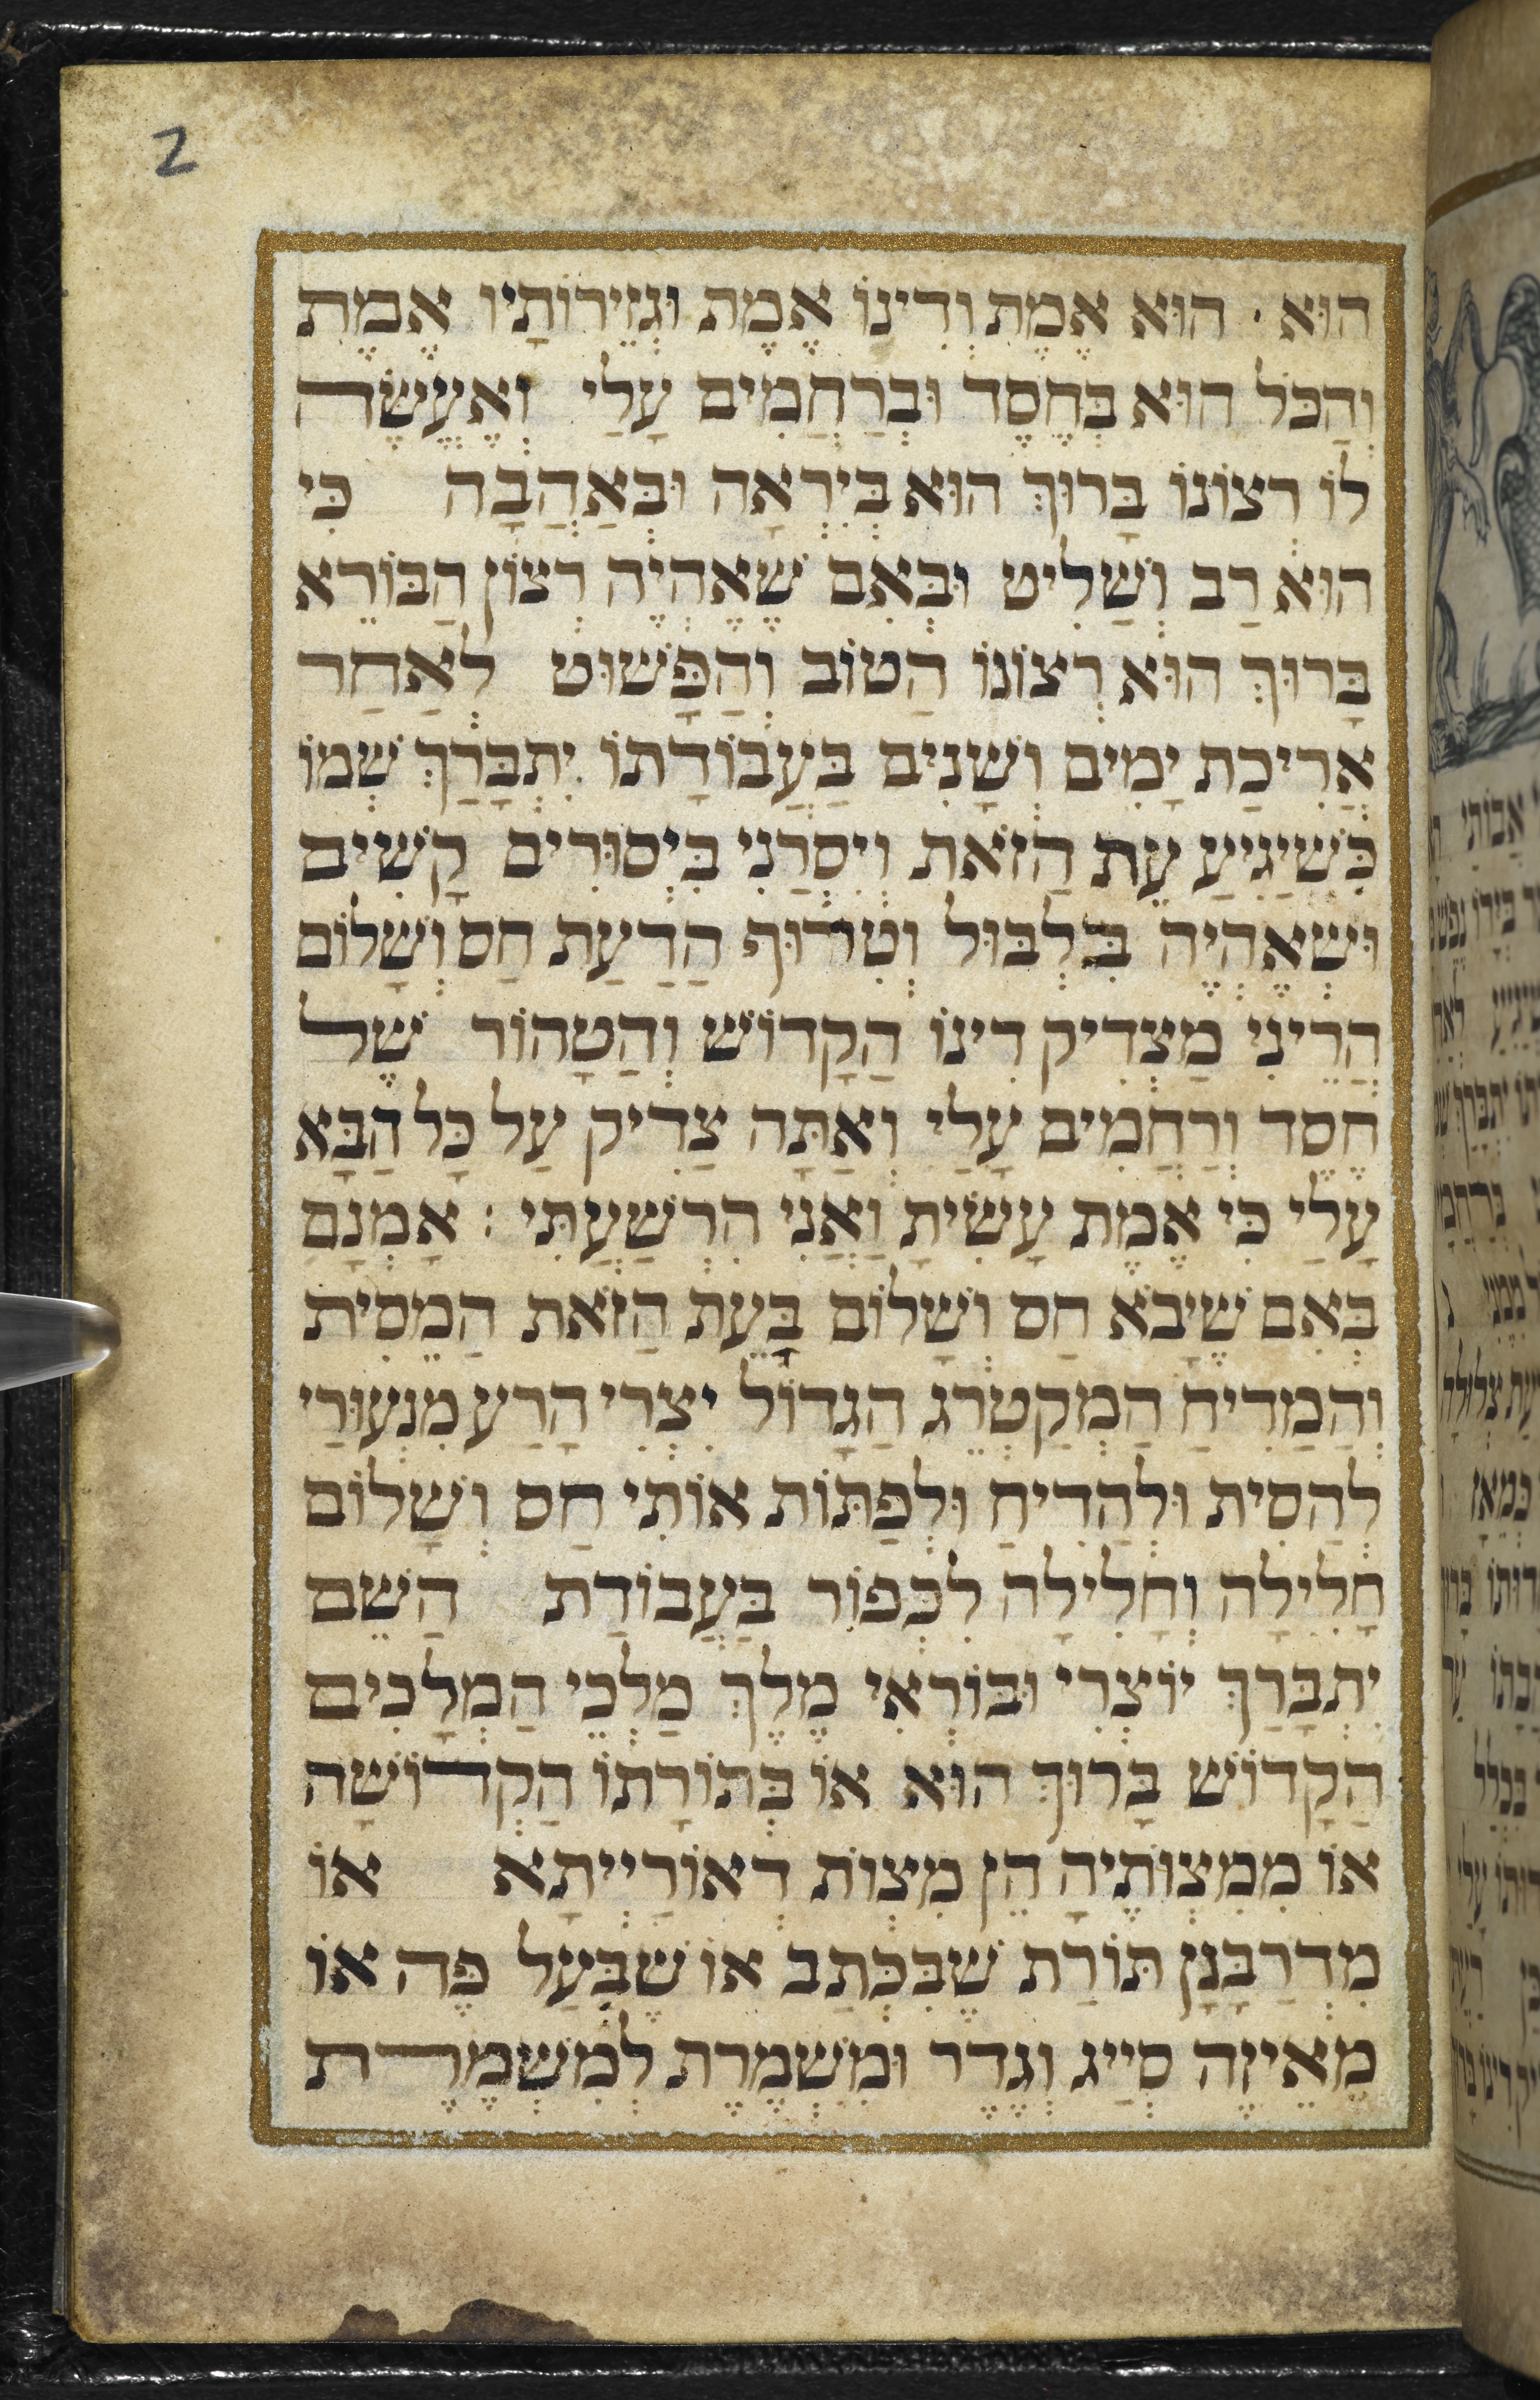 2
הוּא · הוּא אֱמֶת וְדִינוֹ אֱמֶת וּגְזֵירוֹתָיו אֱמֶת
וְהַכֹּל הוּא בְּחֶסֶד וּבְרַחֲמִים עָלַי וְאֶעֱשֶׂה
לוֹ רְצוֹנוֹ בָּרוּךְ הוּא בְּיִרְאָה וּבְּאַהֲבָה כִּי
הוּא רַב וְשַׁלִיט וּבְּאִם שֶׁאֶהְיֶה רְצוֹן הַבּוֹרֵא
בָּרוּךְ הוּא רְצוֹנוֹ הַטוֹב וְהַפָּשׁוּט לְאַחַר
אֲרִיכַת יָמִים וְשָׁנִים בַּעֲבוֹדָתוֹ יִתְבָּרַךְ שְׁמוֹ
כְּשֶׁיַגִיעַ עֵת הַזֹאת וְיִסְרַנִי בְּיִסוּרִים קָשִׁים
וּשְׁאֶהְיֶה בִּלְבּוּל וְטִירוּף הַדַעַת חַס וְשָׁלוֹם
הֲרֵינִי מַצְדִיק דִינוֹ הַקָדוֹשׁ וְהַטָהוֹר שֶׁל
חֶסֶד וְרַחֲמִים עָלַי וְאַתָּה צַדִיק עַל כָּל הַבָּא
עָלַי כִּי אֱמֶת עָשִׂיתָ וַאֲנִי הִרְשַׁעֲתִּי : אָמְנָם
בְּאִם שֶׁיָבֹא חַס וְשָׁלוֹם בָּעֵת הַזֹאת הַמֵסִית
וְהַמַדִיחַ הַמְקַטְרֵג הַגָדוֹל יִצְרִי הָרַע מִנְעוּרַי
לְהַסִית וּלְהַדִיחַ וּלְפַתּוֹת אוֹתִי חַס וְשָׁלוֹם
חָלִילָה וְחָלִילָה לִכְּפוֹר בַּעֲבוֹדַת הַשֵׁם
יִתְבָּרַךְ יוֹצְרִי וּבוֹרְאִי מֶלֶךְ מַלְכֵי הַמְלָכִים
הַקָדוֹשׁ בָּרוּךְ הוּא אוֹ בְּתוֹרָתוֹ הַקְדוֹשָׁה
אוֹ מִמִצְוֹתֶיהָ הֵן מִצְוֹת דְאוֹרַיְיתָא אוֹ
מִדְרַבָּנָן תּוֹרַת שֶׁבִּכְּתַב אוֹ שֶׁבְּעַל פֶּה אוֹ
מֵאֵיזֶה סְיַיג וְגֶדֶר וּמִשְׁמֶרֶת לְמִשְׁמֶרֶת